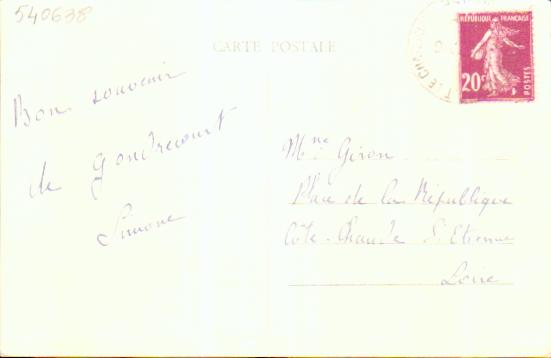 540638
CARTE POSTALE
RÉPUBLIQUE FRANÇAISE
20c
POSTES
Bon souvenir
de Gondrecourt
Simone
Mme Giron
Place de la République
Côte-Chaude S. Etienne
Loire